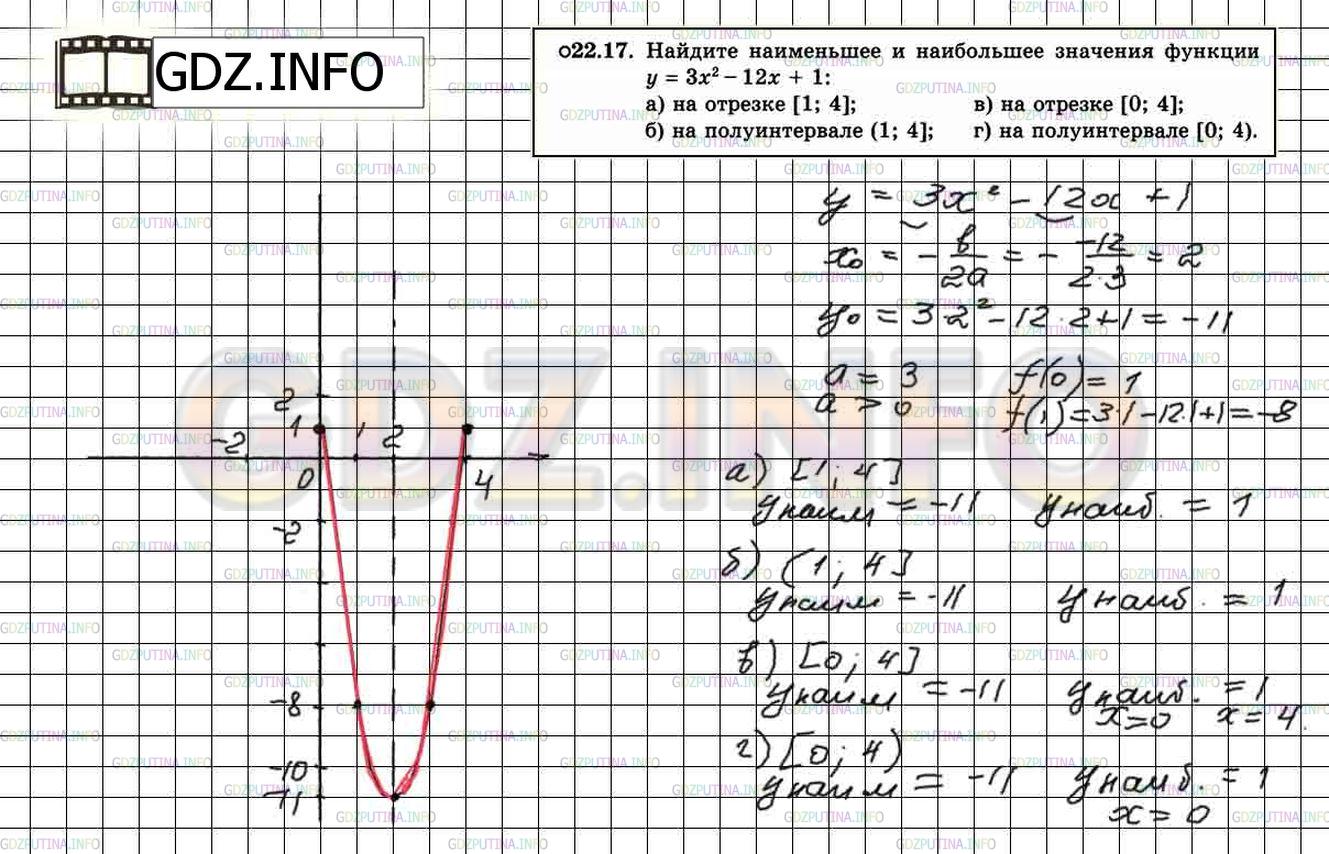 GDZ.INFO
○22.17. Найдите наименьшее и наибольшее значения функции
y = 3x² – 12x + 1:
а) на отрезке [1; 4]; в) на отрезке [0; 4];
б) на полуинтервале (1; 4]; г) на полуинтервале [0; 4).
y = 3x² – 12x + 1
x₀ = – в/2a = – –12/2·3 = 2
y₀ = 3·2² – 12·2+1 = –11
a = 3 f(0) = 1
a > 0 f(1) = 3·1 – 12·1+1 = –8
а) [1; 4]
yнаим = –11 yнаиб. = 1
б) (1; 4]
yнаим = –11 yнаиб. = 1
в) [0; 4]
yнаим = –11 yнаиб. = 1
x=0 x=4.
г) [0; 4)
yнаим = –11 yнаиб. = 1
x = 0
2
1
–2 1 2
0 4
–2
–8
–10
–11
GDZ.INFO
GDZPUTINA.INFO